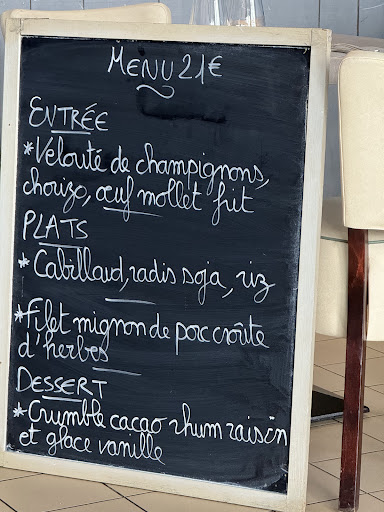 MENU 21€
ENTRÉE
*Velouté de champignons,
chorizo, œuf mollet frit
PLATS
*Cabillaud, radis soja, riz
*Filet mignon de porc croûte
d'herbes
DESSERT
*Crumble cacao rhum raisin
et glace vanille